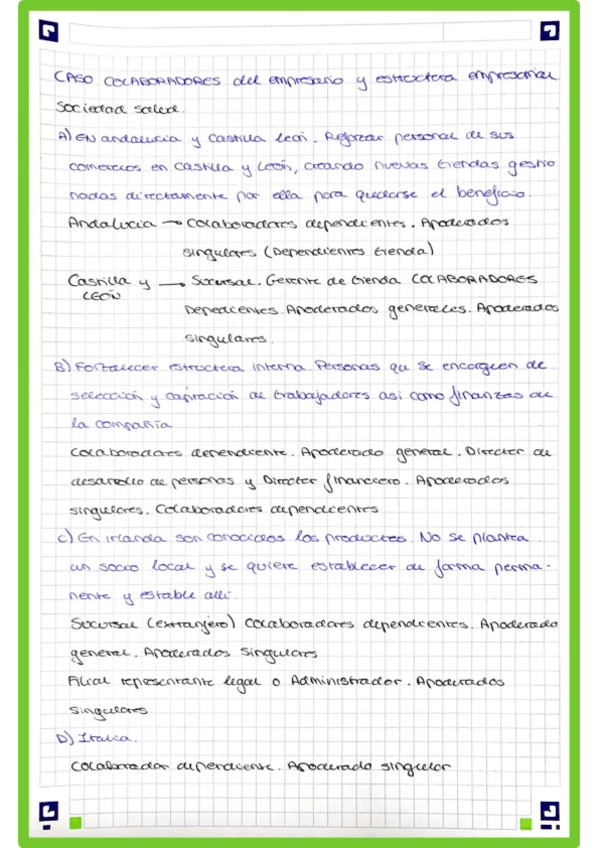 CASO COLABORADORES del empresario y estructura empresarial
Sociedad Saled.
A) EN andalucia y Castilla león. Reforzar personal de sus
comercios en Castilla y León, creando nuevas tiendas gestio
nadas directamente por ella para quedarse el beneficio.
Andalucia → Colaboradores dependientes. Apoderados
singulares (Dependientes tienda)
Castilla y → Sucursal. Gerente de tienda COLABORADORES
LEÓN
Dependientes. Apoderados generales. Apoderados
singulares.
B) Fortalecer estructura interna. Personas que se encarguen de
selección y captación de trabajadores asi como finanzas de
la compañía
Colaboradores dependiente. Apoderado general. Director de
desarrollo de personas y Director financiero. Apoderados
singulares. Colaboradores dependientes
C) En irlanda son conocidos los productos. No se plantea
un socio local y se quiere establecer de forma perma-
nente y estable allí.
Sucursal (extranjero) Colaboradores dependientes. Apoderado
general. Apoderados Singulares
Filial representante legal o Administrador. Apoderados
singulares
D) Italia.
Colaborador dependiente. Apoderado singular